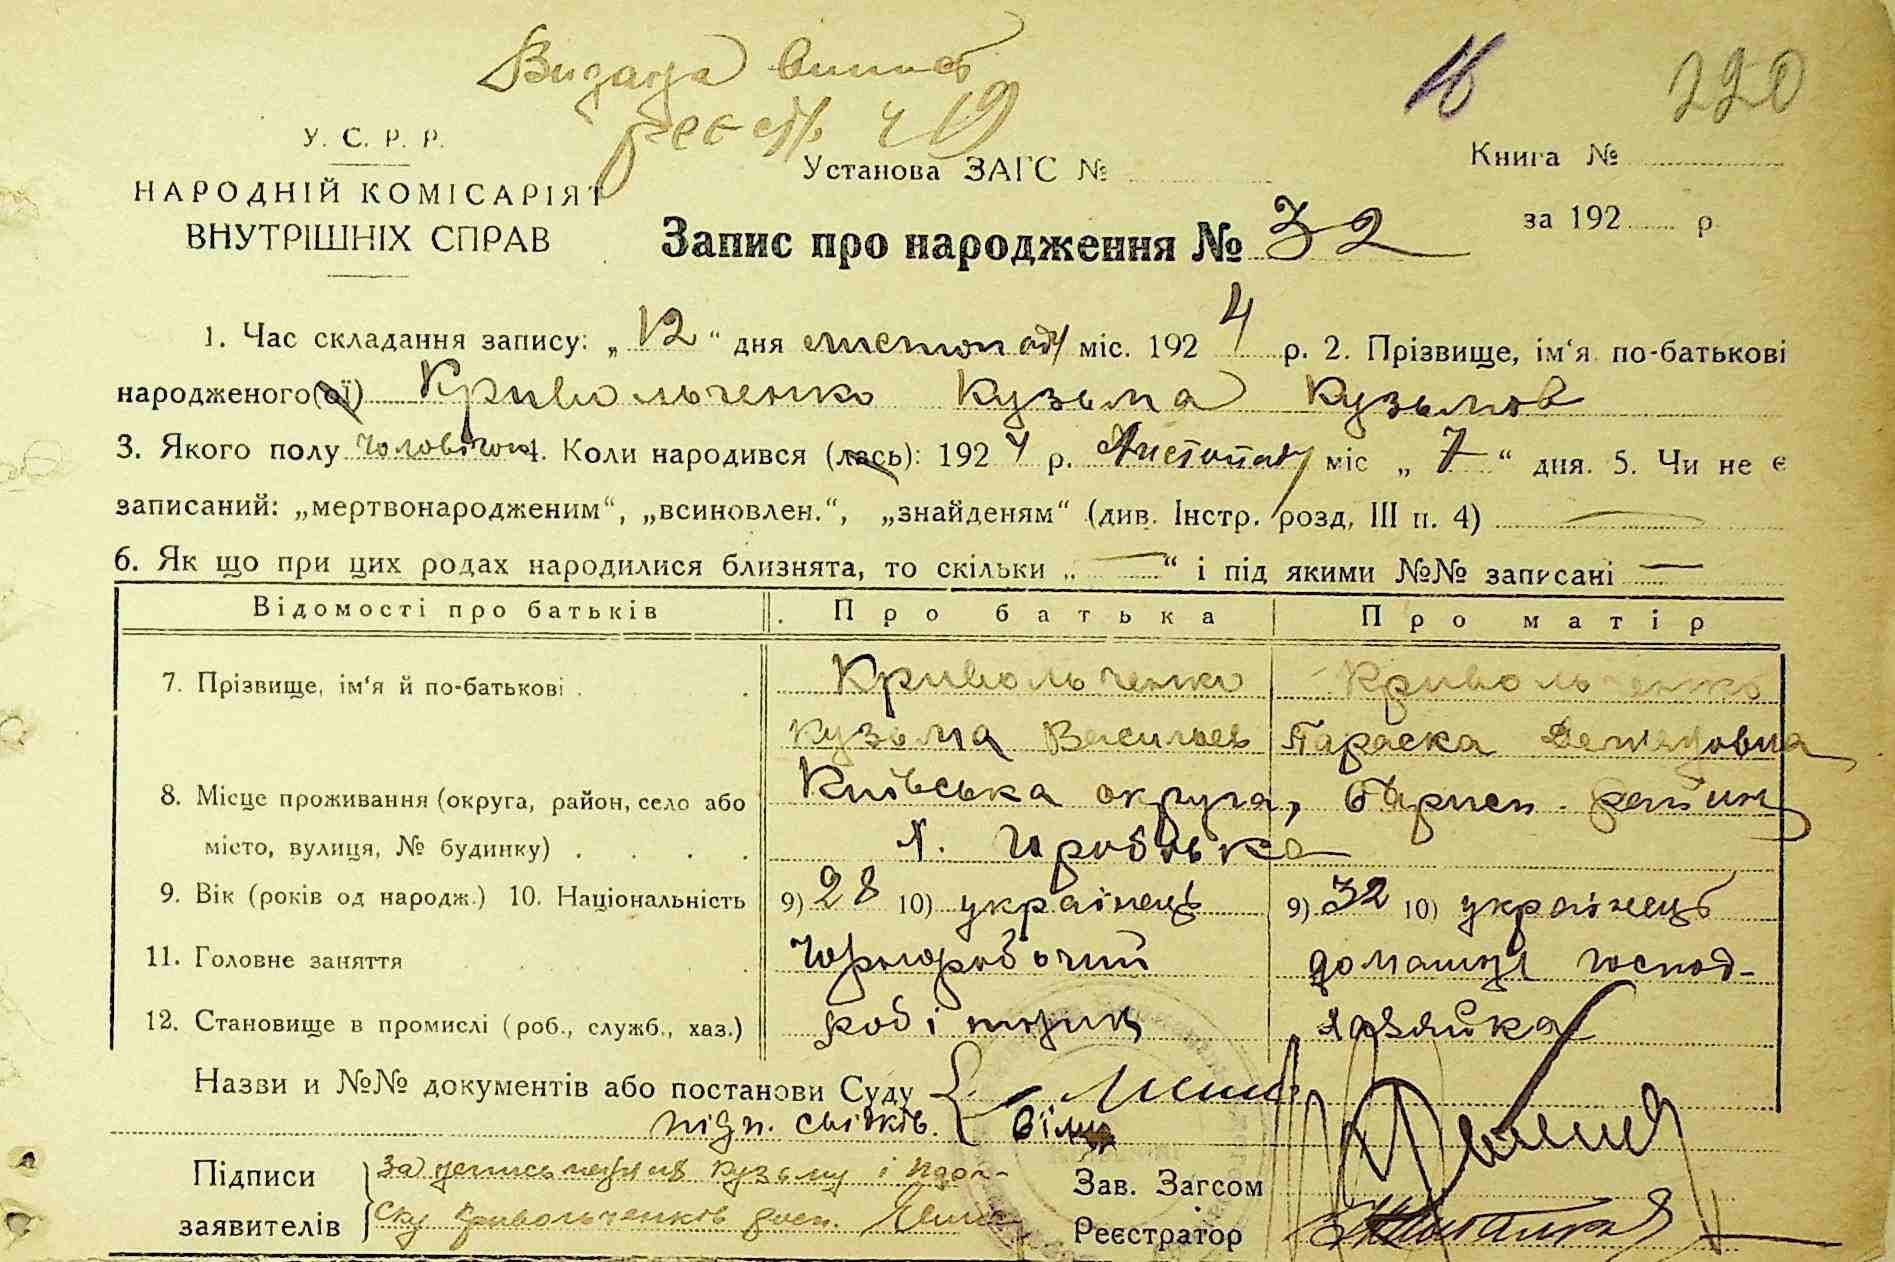 Видана
16
220
У. С. Р. Р.
НАРОДНІЙ КОМІСАРІЯТ
ВНУТРІШНІХ СПРАВ
Установа ЗАГС №
Книга №
за 192 р
Запис про народження № 32
1. Час складання запису: „ 12 “ дня листопаду міс. 192 4 р. 2. Прізвище, ім‘я по-батькові
народженого(ої) Кривольченко Кузьма Кузьмов
3. Якого полу чоловічої 4. Коли народився (лась): 192 4 р. Листопаду міс „ 7 “ дня. 5. Чи не є
записаний: „мертвонародженим“, „всиновлен.“, „знайденям“ (див. Інстр. розд. III п. 4) —
6. Як що при цих родах народилися близнята, то скільки „ — “ і під якими №№ записані —
Відомості про батьків Про батька Про матір
7. Прізвище, ім‘я й по-батькові . Кривольченко Кривольченко
Кузьма Васильев Параска Демидовна
8. Місце проживання (округа, район, село або Київська округа,
місто, вулиця, № будинку)
9. Вік (років од народж.) 10. Національність 9) 28 10) українець 9) 32 10) українець
11. Головне заняття Чорноробочий домашнє господ-
12. Становище в промислі (роб., служб., хаз.) робітник хазяйка
Назви и №№ документів або постанови Суду
підп. свідків.
Підписи За неписьменних Кузьму і Пара-
заявителів ску Кривольченків росп.
Зав. Загсом
Реєстратор